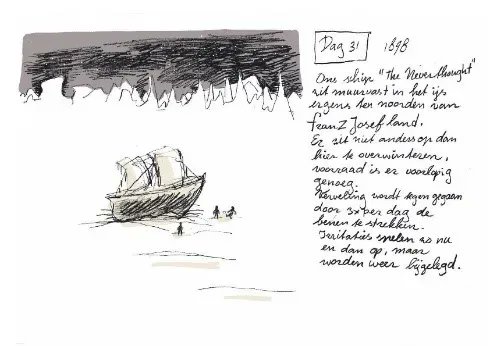 Dag 31 1898
Ons schip "The Never thought"
zit muurvast in het ijs
ergens ten noorden van
Franz Josef land.
Er zit niet anders op dan
hier te overwinteren,
voorraad is er voorlopig
genoeg.
Verveling wordt tegen gegaan
door 3x per dag de
benen te strekken.
Irritaties spelen zo nu
en dan op, maar
worden weer bijgelegd.